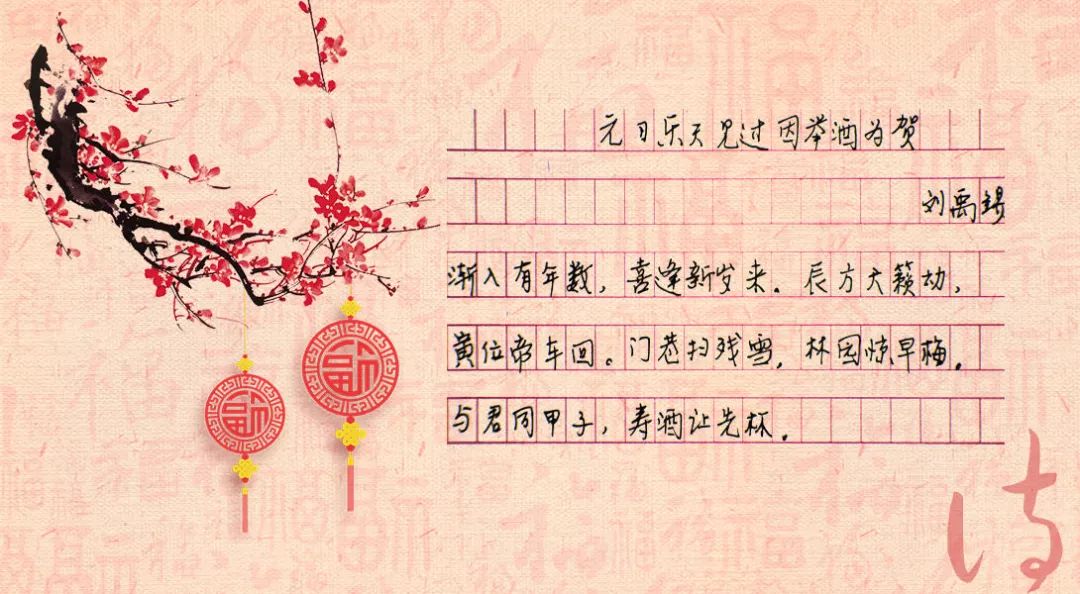 元日乐天见过因举酒为贺
刘禹锡
渐入有年数，喜逢新岁来。辰方天籁动，
寅位帝车回。门巷扫残雪，林园惊早梅。
与君同甲子，寿酒让先杯。
诗